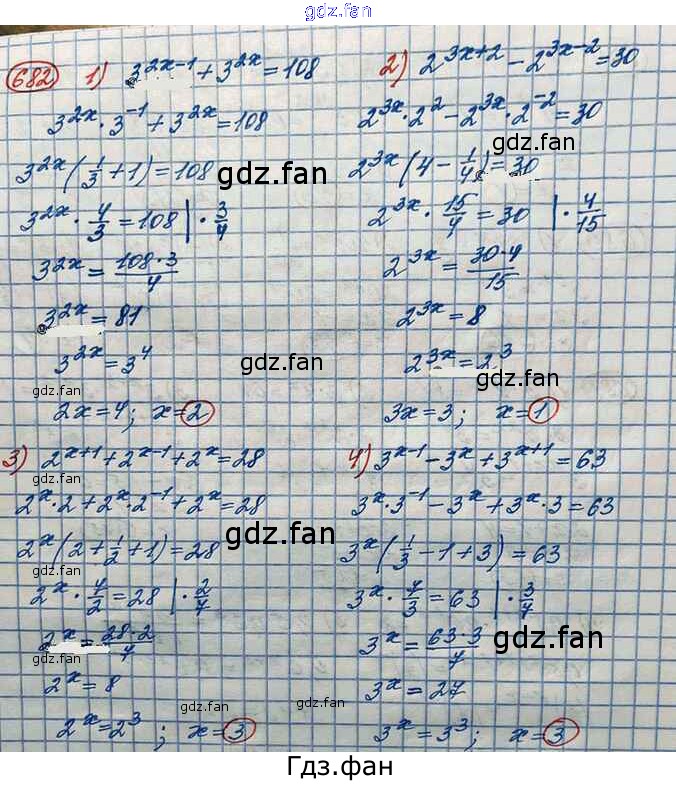 gdz.fan
682 1) 3^{2x-1} + 3^{2x} = 108
3^{2x} · 3^{-1} + 3^{2x} = 108
3^{2x} (1/3 + 1) = 108
gdz.fan
3^{2x} · 4/3 = 108 | · 3/4
3^{2x} = 108·3/4
3^{2x} = 81
3^{2x} = 3^4
gdz.fan
gdz.fan
2x = 4; x = 2
2) 2^{3x+2} - 2^{3x-2} = 30
2^{3x} · 2^2 - 2^{3x} · 2^{-2} = 30
gdz.fan
2^{3x} (4 - 1/4) = 30
2^{3x} · 15/4 = 30 | · 4/15
2^{3x} = 30·4/15
2^{3x} = 8
2^{3x} = 2^3
gdz.fan
3x = 3; x = 1
3) 2^{x+1} + 2^{x-1} + 2^x = 28
gdz.fan
2^x · 2 + 2^x · 2^{-1} + 2^x = 28
2^x (2 + 1/2 + 1) = 28
gdz.fan
gdz.fan
2^x · 7/2 = 28 | · 2/7
2^x = 28·2/7
gdz.fan
2^x = 8
2^x = 2^3; x = 3
gdz.fan
4) 3^{x-1} - 3^x + 3^{x+1} = 63
3^x · 3^{-1} - 3^x + 3^x · 3 = 63
3^x (1/3 - 1 + 3) = 63
gdz.fan
3^x · 7/3 = 63 | · 3/7
3^x = 63·3/7
gdz.fan
3^x = 27
3^x = 3^3; x = 3
gdz.fan
Гдз.фан